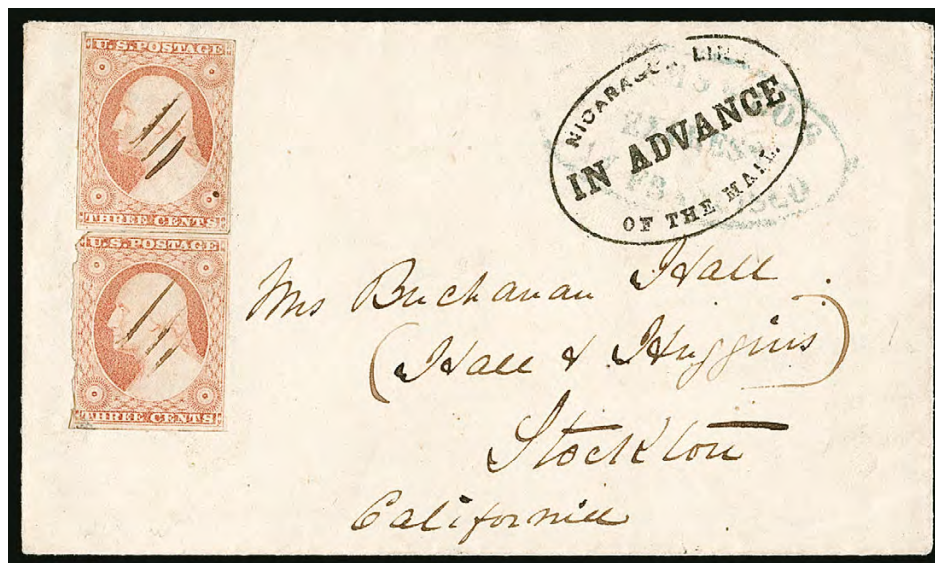 U.S. POSTAGE
THREE CENTS
U.S. POSTAGE
THREE CENTS
NICARAGUA LINE
IN ADVANCE
OF THE MAIL.
Mrs Buchanan Hall
(Hall & Huggins)
Stockton
California